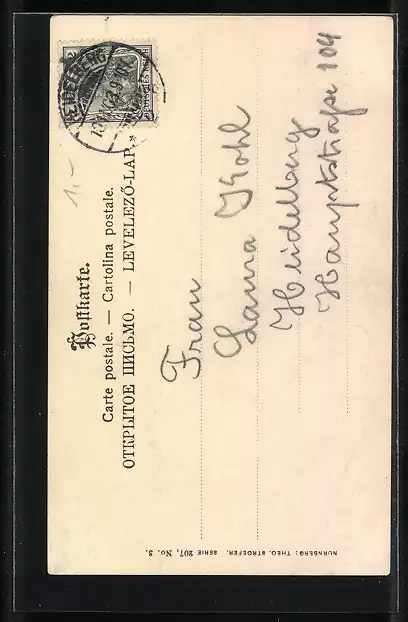 Postkarte.
Carte postale. — Cartolina postale.
ОТКРЫТОЕ ПИСЬМО. — LEVELEZŐ-LAP.
HEIDELBERG
Frau
Hohl
Heidelberg
Hauptstraße 104
1.-
NURNBERG: THEO. STROEFER. SERIE 207, No. 3.